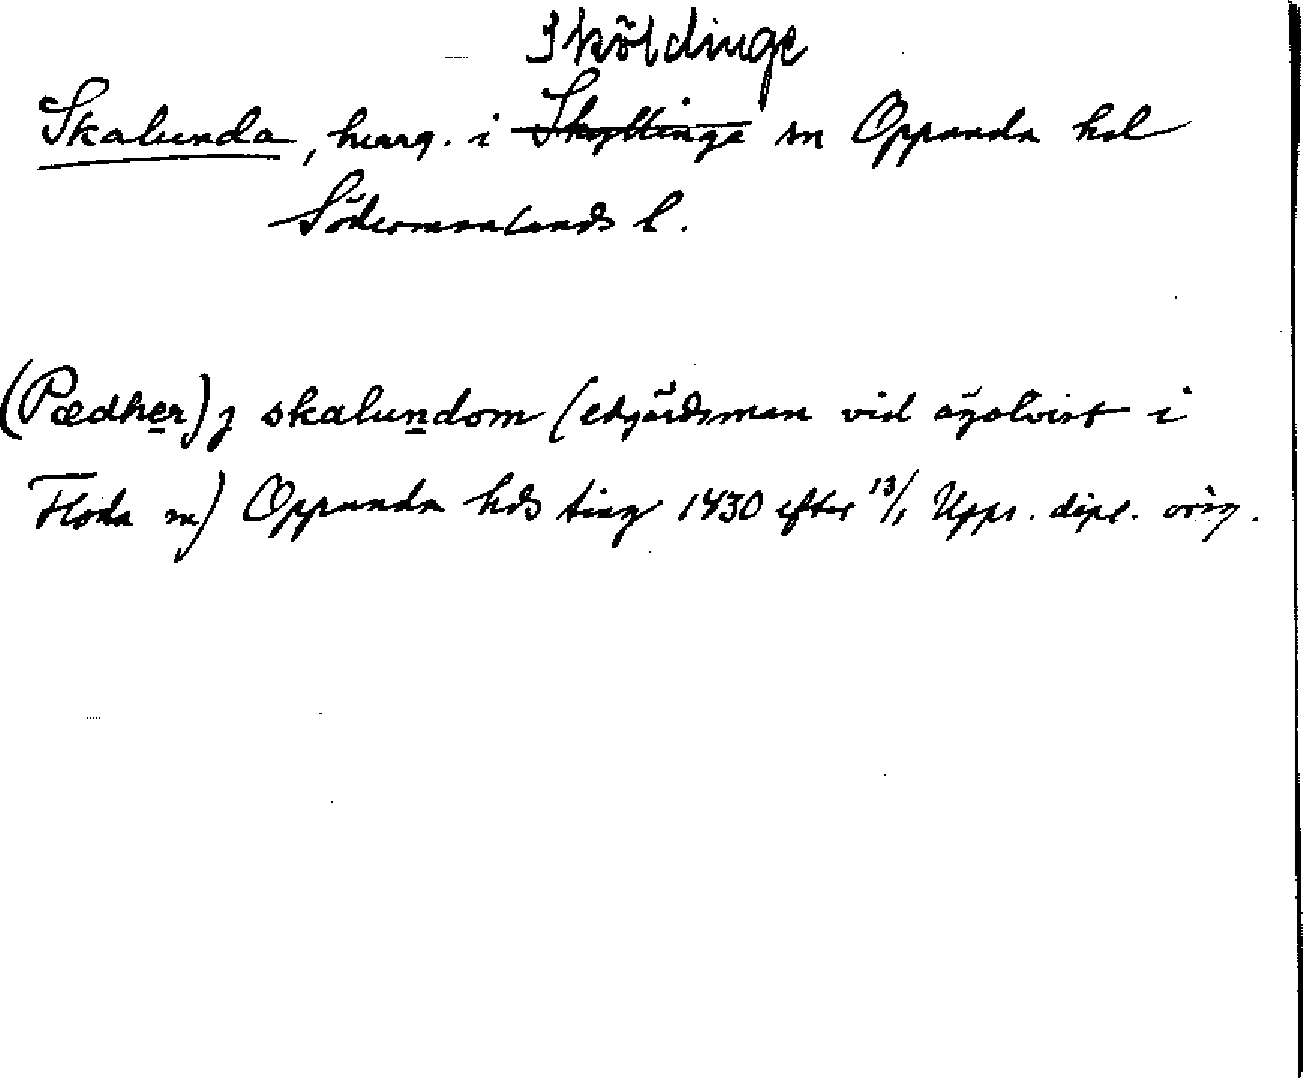 Sköldinge
Skalunda, herrg. i Skyttinge sn Oppunda hd
Södermanlands l.
(Pædher) j skalundom (edgärdsman vid ägotvist i
Floda sn) Oppunda hds ting 1430 efter 13/1 Upps. dipl. orig.